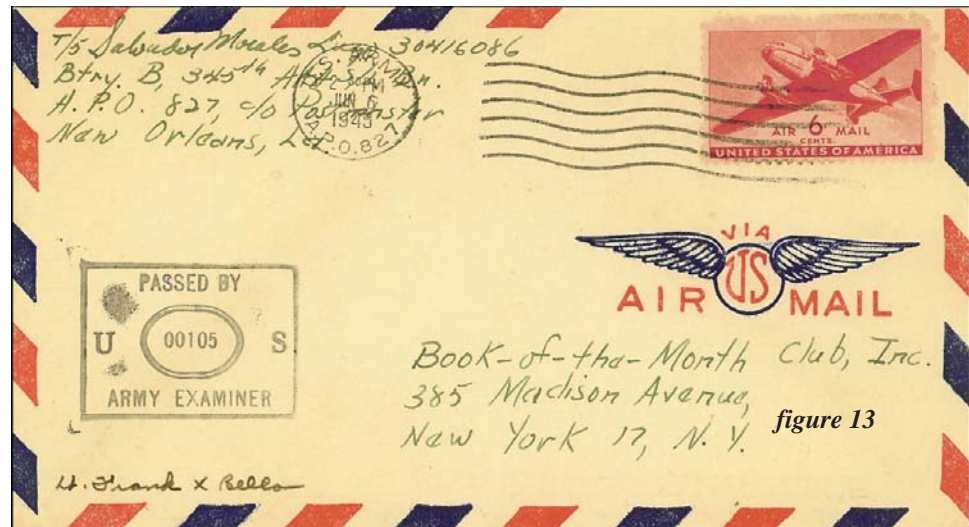 T/5 Salvador Morales 30416086
Btry. B, 345th Bn.
A.P.O. 827, c/o Postmaster
New Orleans, La.
U.S. ARMY
2 PM
JUN 6
1943
A.P.O. 827
AIR 6 MAIL
CENTS
UNITED STATES OF AMERICA
VIA
AIR US MAIL
PASSED BY
U 00105 S
ARMY EXAMINER
Book-of-the-Month Club, Inc.
385 Madison Avenue,
New York 17, N. Y.
figure 13
Lt. Frank X Bello